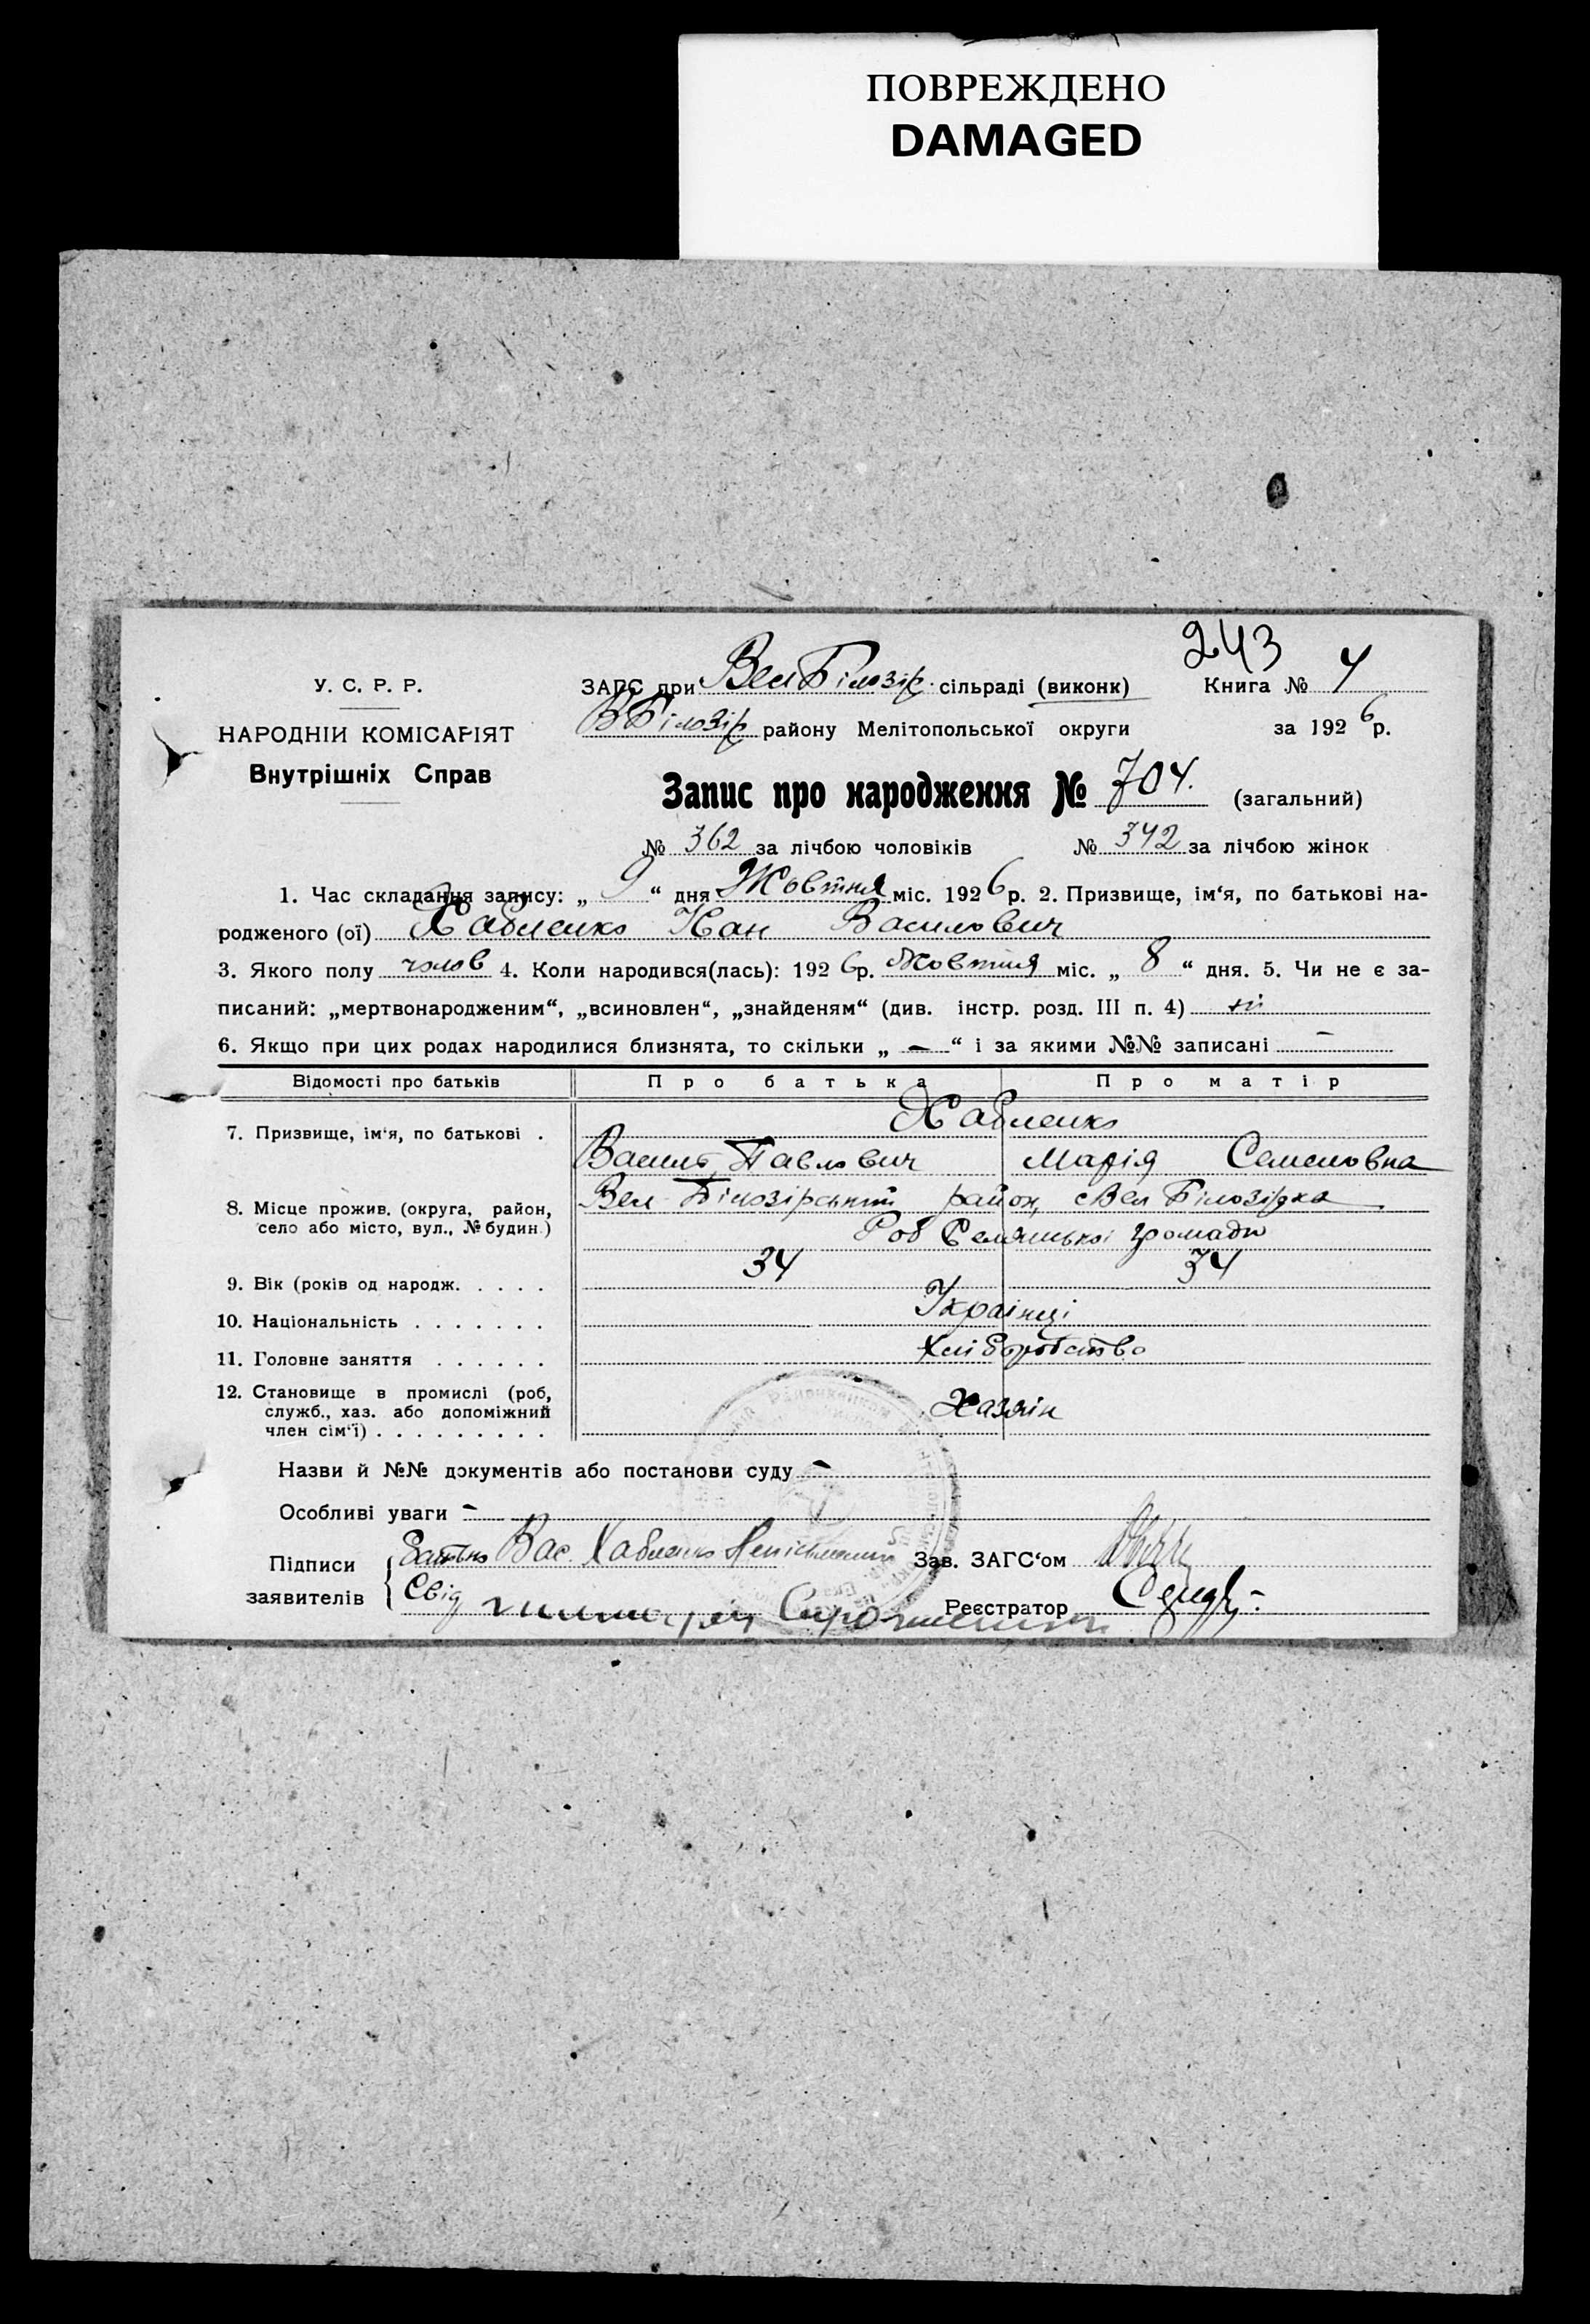 ПОВРЕЖДЕНО
DAMAGED
243
У. С. Р. Р.
НАРОДНІЙ КОМІСАРІЯТ
Внутрішніх Справ
ЗАГС при Вел Білозір. сільраді (виконк) Книга № 4
В Білозір району Мелітопольської округи за 1926 р.
Запис про народження № 704. (загальний)
№ 362 за лічбою чоловіків № 342 за лічбою жінок
1. Час складання запису: „ 9 “ дня Жовтня міс. 1926 р. 2. Призвище, ім‘я, по батькові на-
родженого (ої) Хабленко Іван Василович
3. Якого полу чолов 4. Коли народився(лась): 1926 р. Жовтня міс. „ 8 “ дня. 5. Чи не є за-
писаний: „мертвонародженим“, „всиновлен“, „знайденям“ (див. інстр. розд. III п. 4) ні
6. Якщо при цих родах народилися близнята, то скільки „ — “ і за якими №№ записані —
Відомості про батьків Про батька Про матір
7. Призвище, ім‘я, по батькові . Хабленко
Василь Павлович Марія Семеновна
8. Місце прожив. (округа, район, село або місто, вул., № будин.) Вел Білозірський район, с Вел Білозірка
Роб Селянської громади
9. Вік (років од народж. . . . . 34 34
10. Національність . . . . . . . Українці
11. Головне заняття . . . . . . Хліборобство
12. Становище в промислі (роб,
служб., хаз. або допоміжний
член сім‘ї) . . . . . . . . . Хазяін
Назви й №№ документів або постанови суду —
Особливі уваги —
Підписи заявителів { Батько Вас. Хабленко Неписьменний Зав. ЗАГС‘ом
Свід Реєстратор